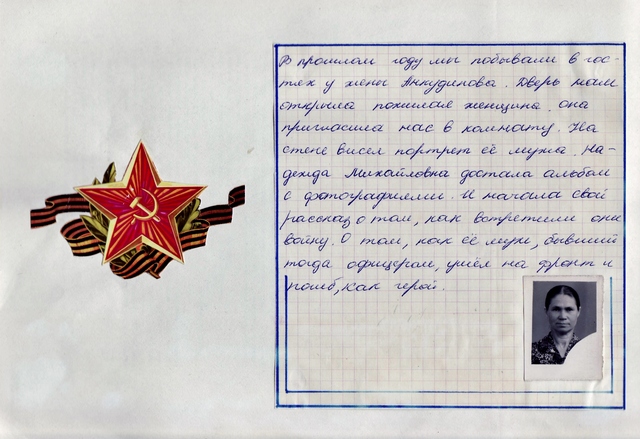 В прошлом году мы побывали в гос-
тех у жены Анкудинова. Дверь нам
открыла пожилая женщина, она
пригласила нас в комнату. На
стене висел портрет её мужа. На-
дежда Михайловна достала альбом
с фотографиями. И начала свой
рассказ о том, как встретили они
войну. О том, как её муж, бывший
тогда офицером, ушёл на фронт и
погиб, как герой.